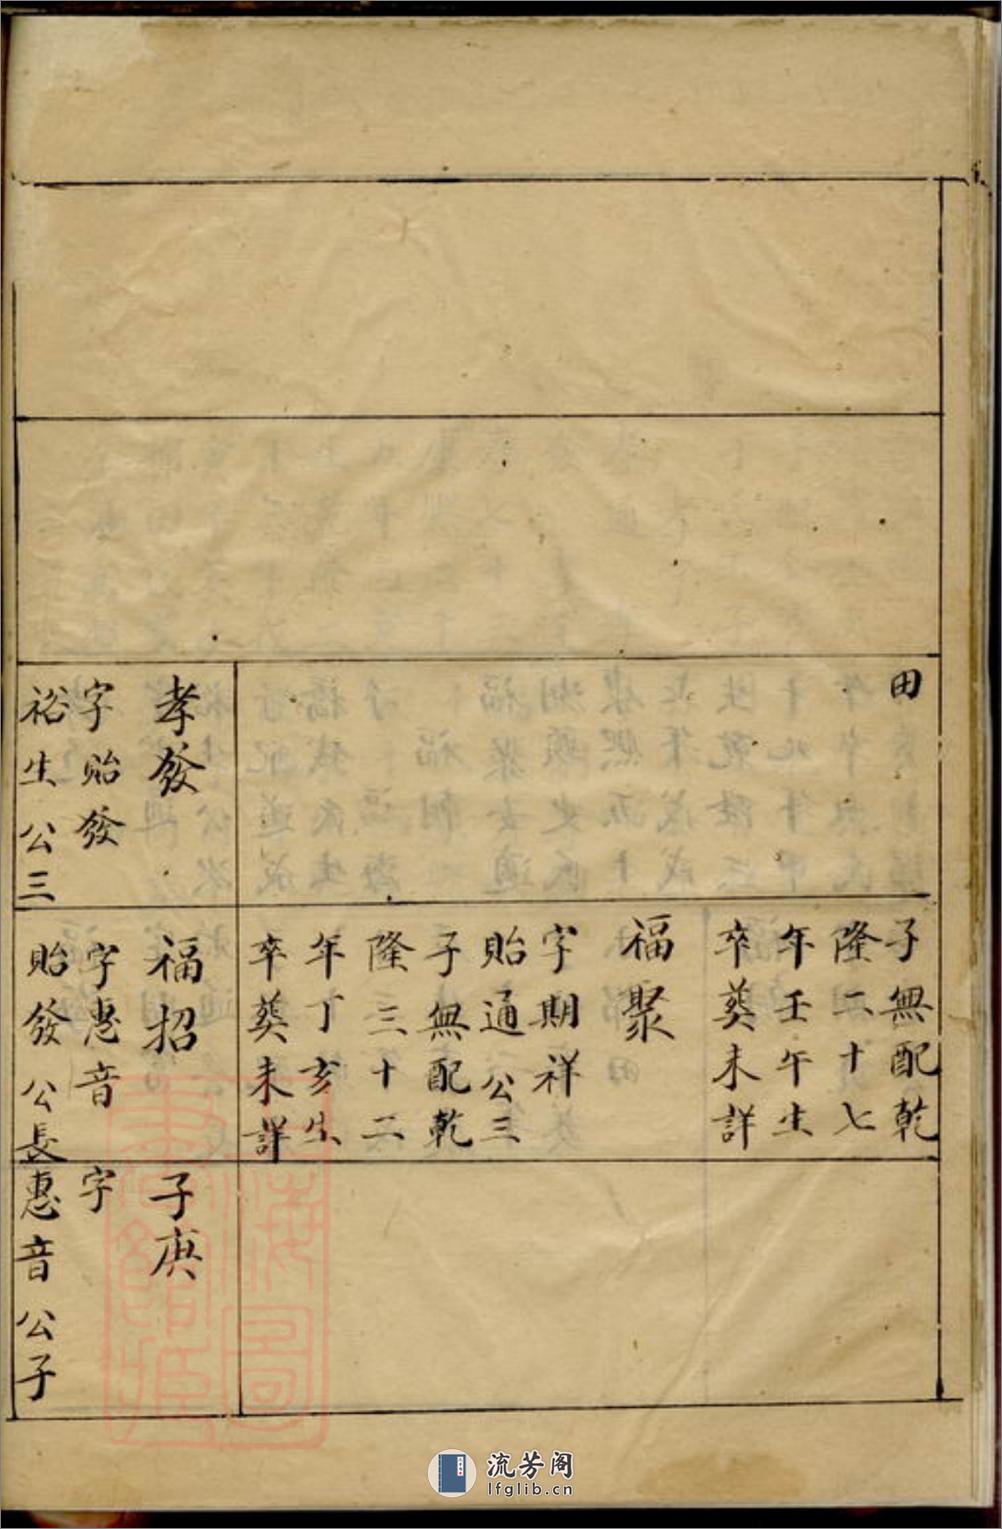 田
孝發
字貽發
裕生公三
子無配乾
隆二十七
年壬午生
卒葬未詳
福聚
字期祥
貽通公三
子無配乾
隆三十二
年丁亥生
卒葬未詳
福招
字惠音
貽發公長
子庚
字
惠音公子
流芳阁
lfglib.cn